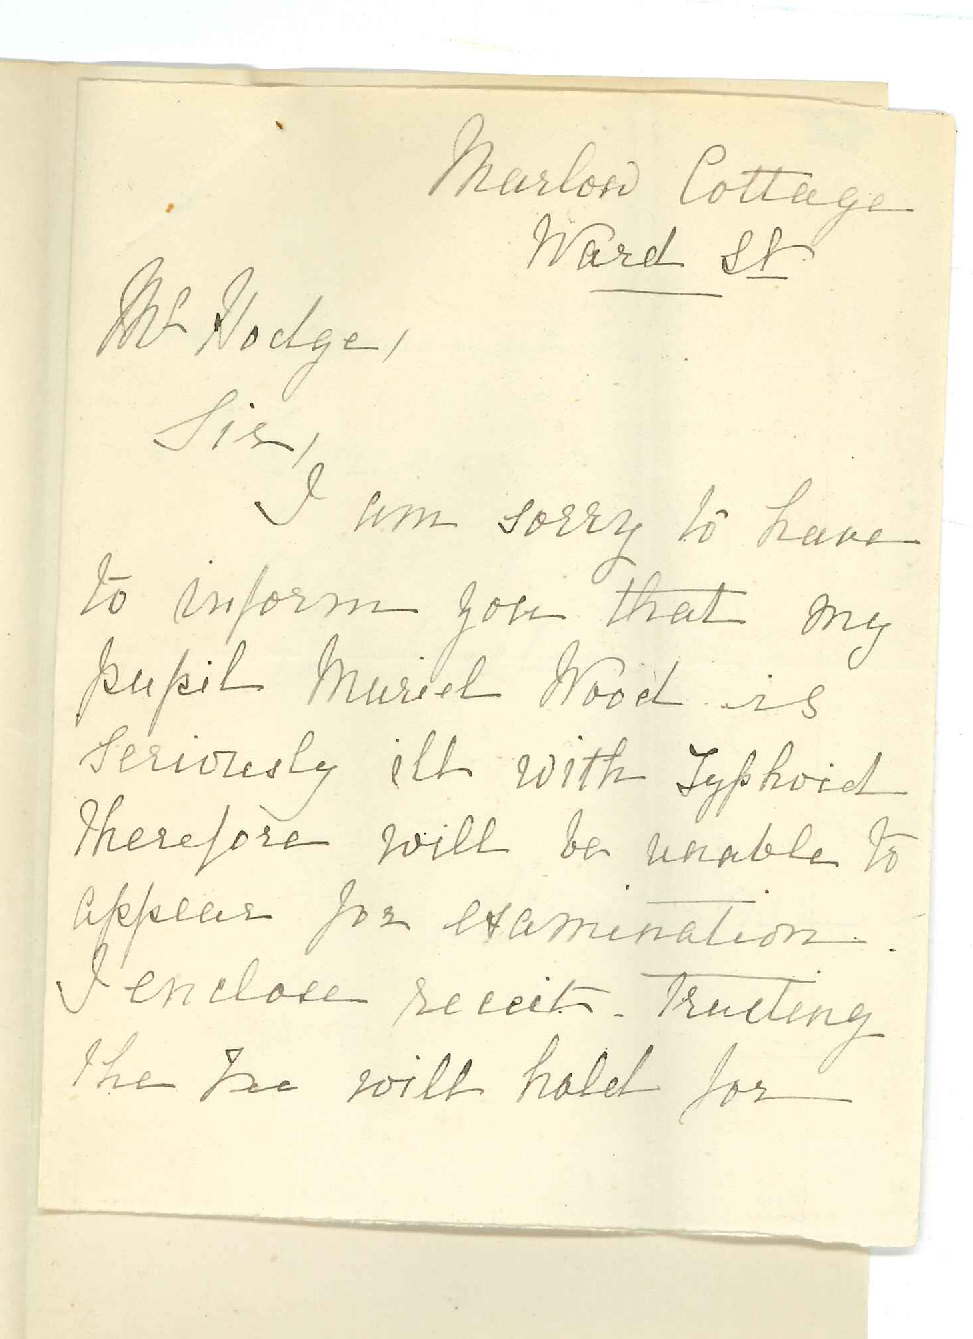 Marlow Cottage
Ward St
Mr Hodge,
Sir,
I am sorry to have
to inform you that my
pupil Muriel Wood is
seriously ill with Typhoid
therefore will be unable to
appear for examination.
I enclose receit. Trusting
the Fee will hold for